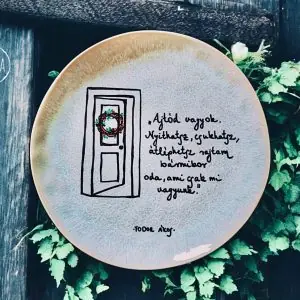 „Ajtód vagyok.
Nyithatsz, csukhatsz,
átléphetsz rajtam
bármikor
oda, ami csak mi
vagyunk."
-FODOR ÁKOS-